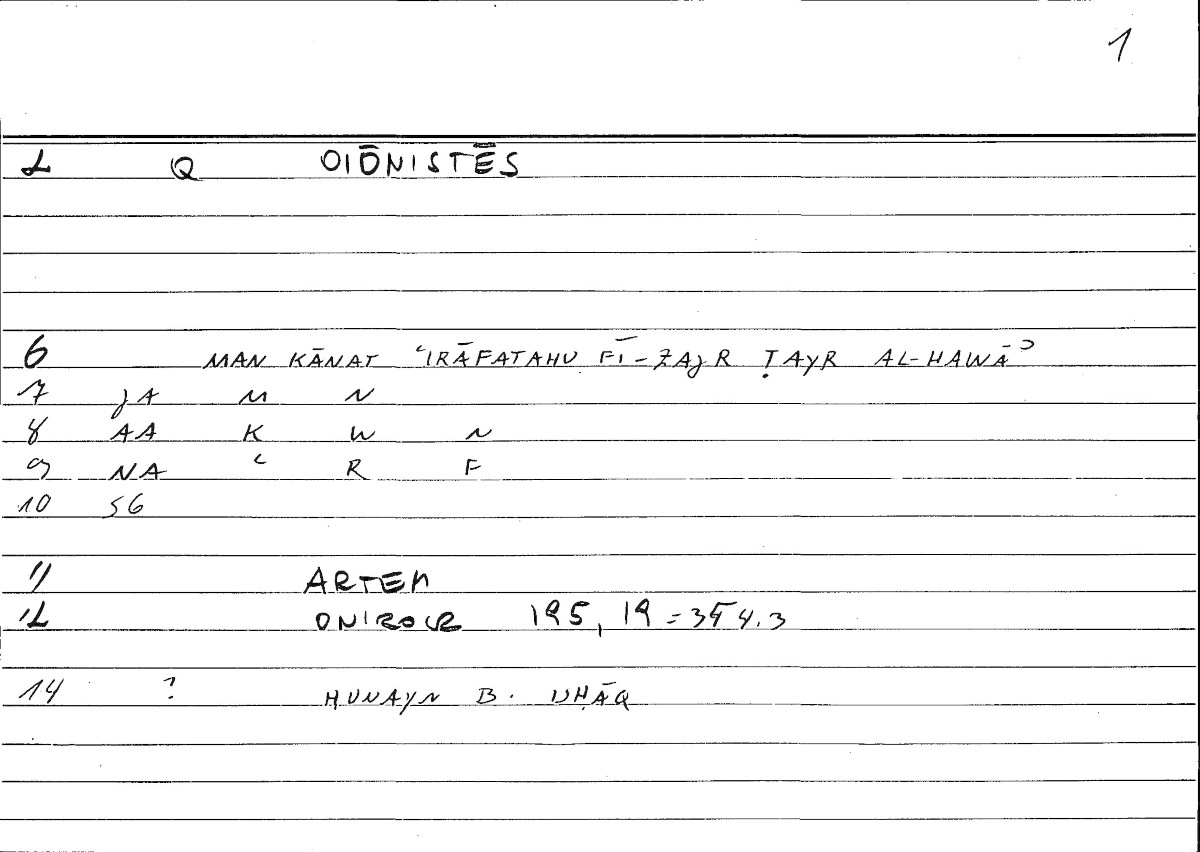 1
2 Q OIŌNISTĒS
6 MAN KĀNAT ʿIRĀFATAHU FĪ-ZAJR ṬAYR AL-HAWĀʾ
7 JA M N
8 AA K W N
9 NA ʿ R F
10 SG
11 ARTEM
12 ONIROCR 195, 19 = 354.3
14 ? ḤUNAYN B. ISḤĀQ